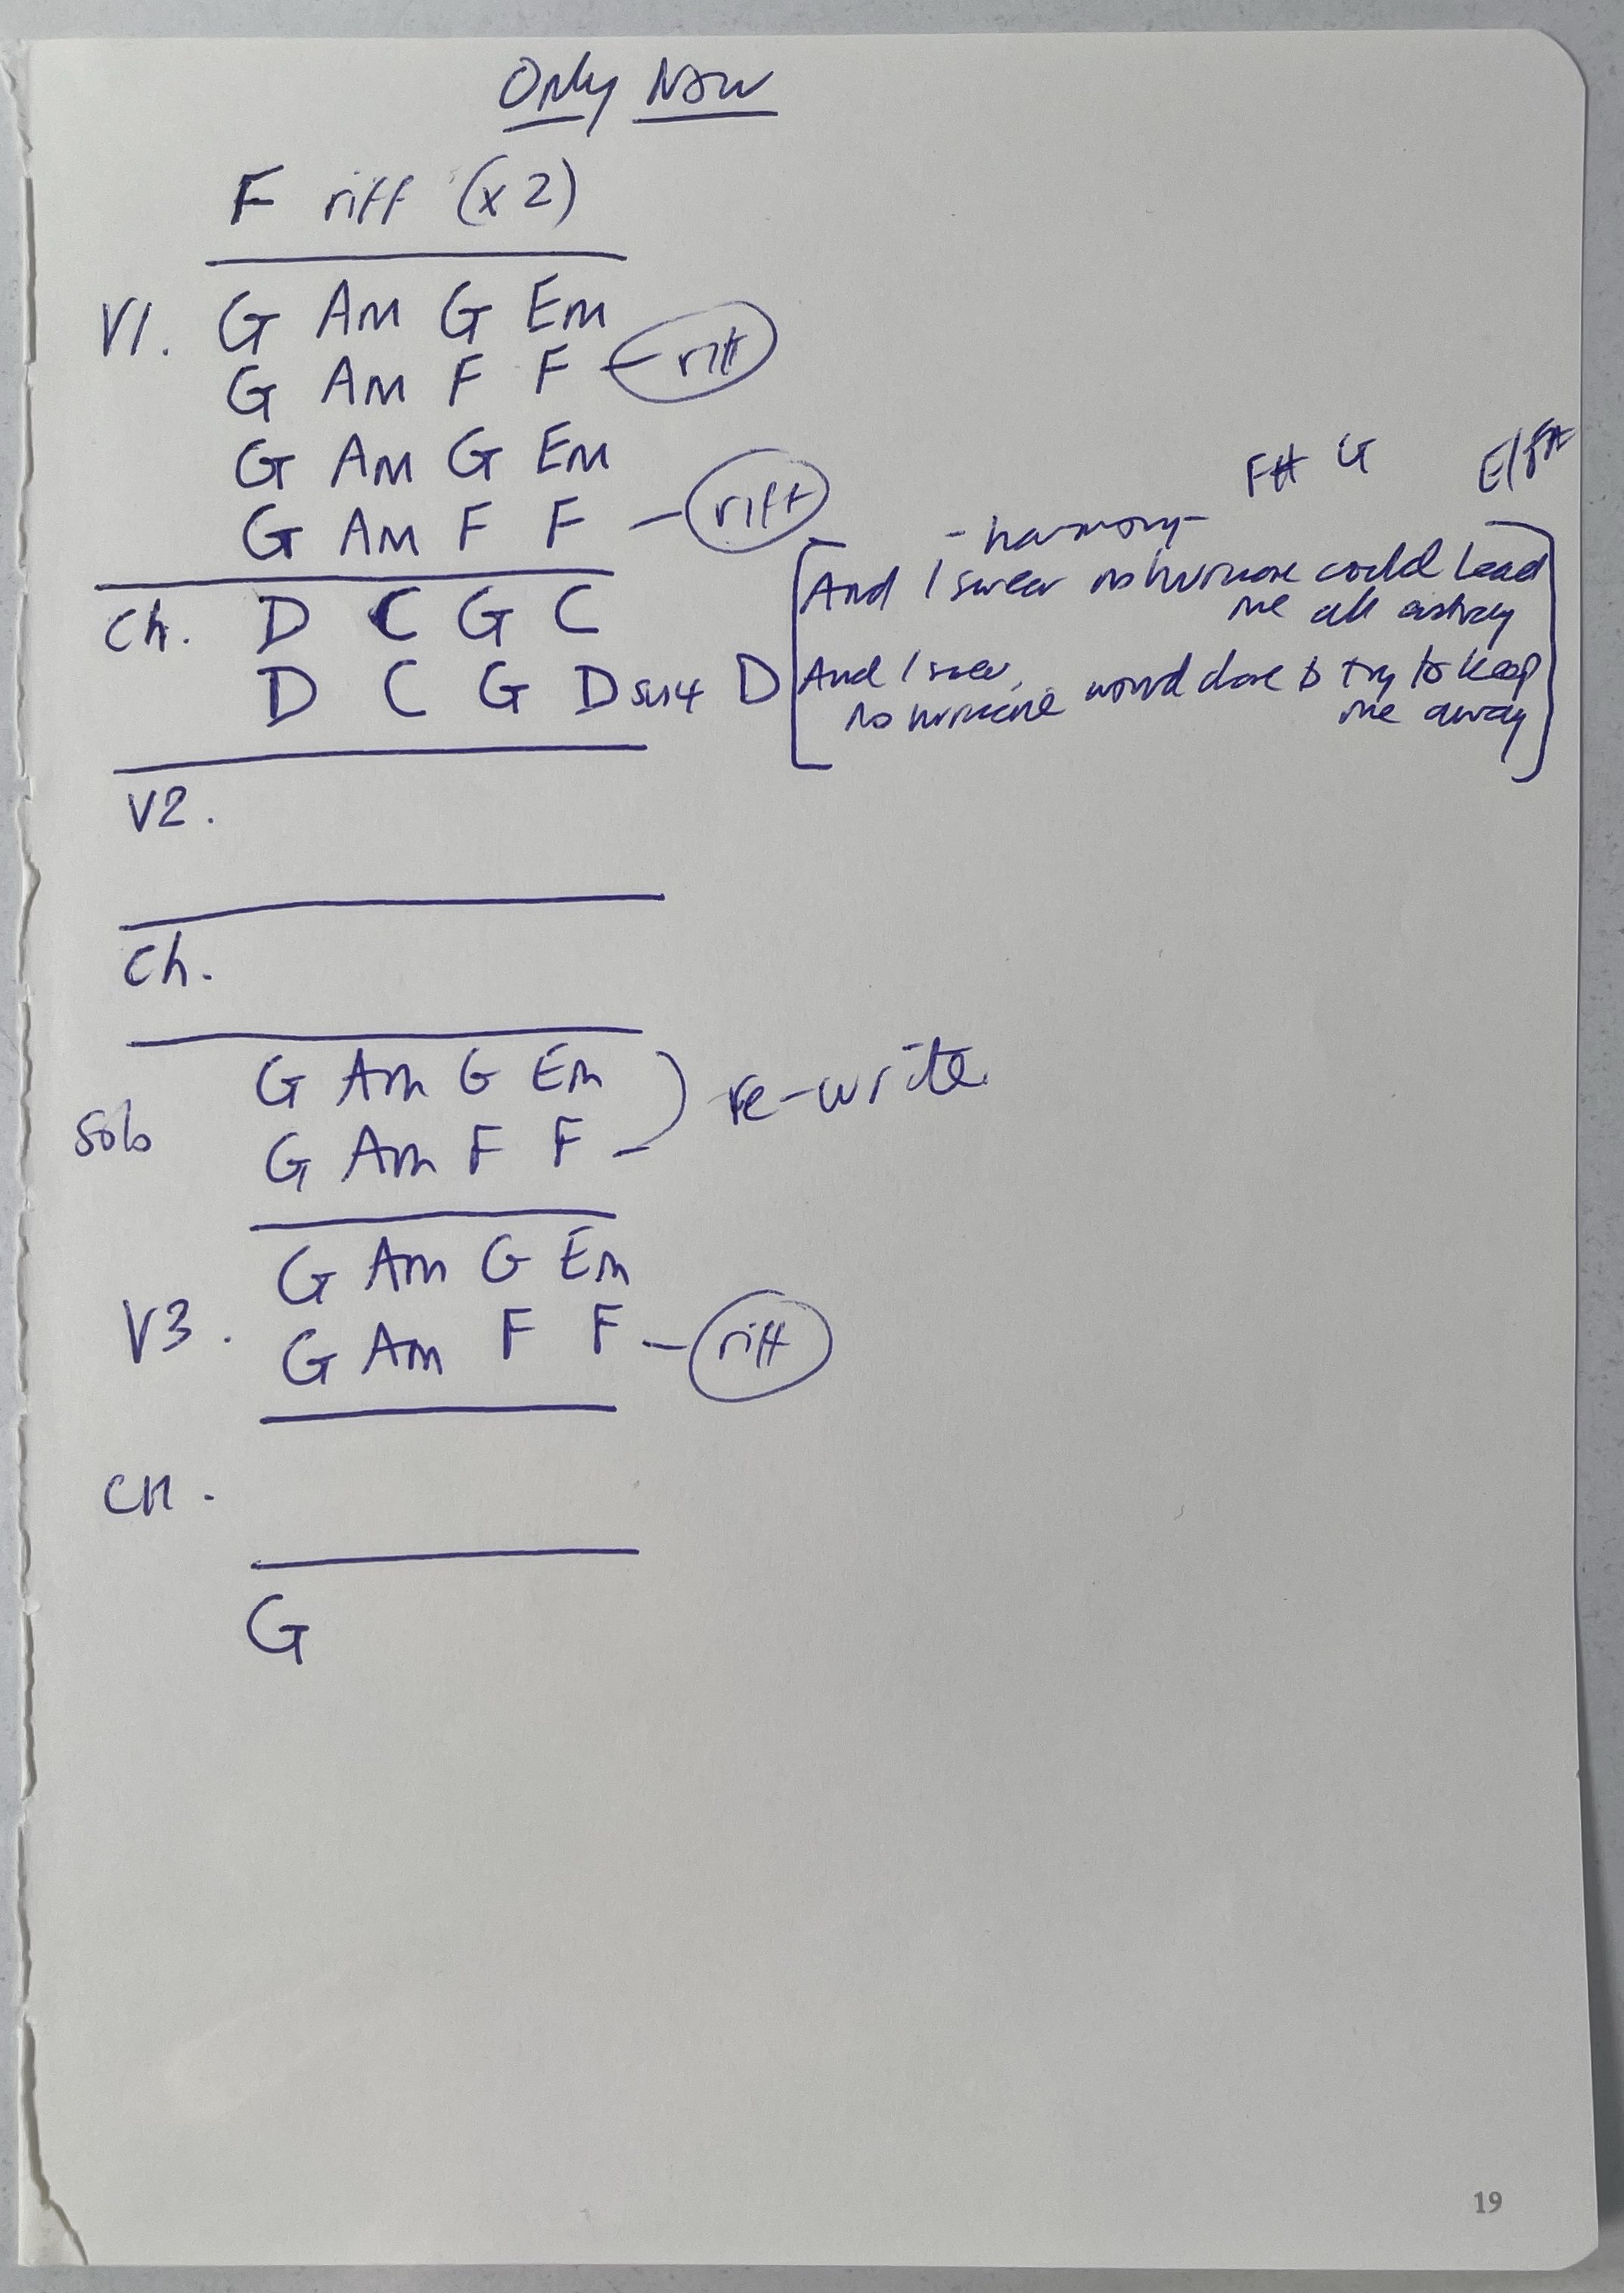 Only Now
F riff (x2)
V1. G Am G Em
G Am F F - riff
G Am G Em
G Am F F - riff
F# G E/F#
- harmony -
And I swear no hurricane could lead
me all astray
Ch. D C G C
D C G Dsus4 D
And I swear,
no hurricane would dare to try to keep
me away
V2.
Ch.
Solo
G Am G Em
G Am F F -
re-write
V3.
G Am G Em
G Am F F - riff
CH.
G
19